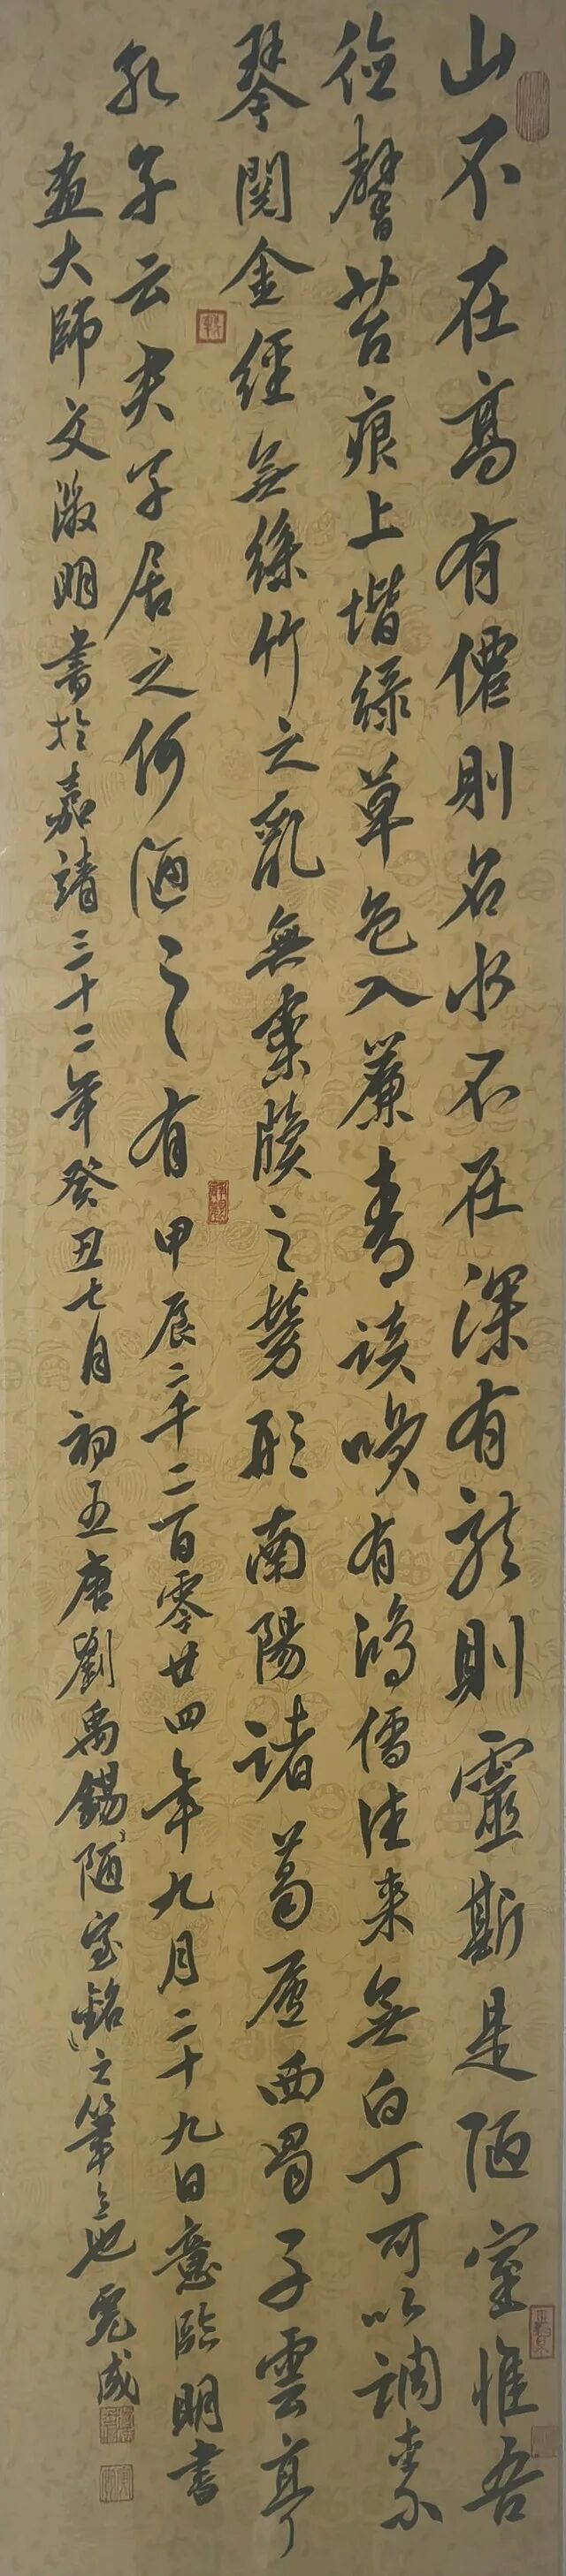 山不在高有僊則名水不在深有龍則靈斯是陋室惟吾
德馨苔痕上堦綠草色入簾青談咲有鴻儒往来無白丁可以調素
琴閱金經無絲竹之亂無案牘之勞形南陽諸葛廬西蜀子雲亭
孔子云夫子居之何陋之有 甲辰二千二百零廿四年九月二十九日意臨明書
畫大師文徵明書於嘉靖三十二年癸丑七月初五唐劉禹錫『陋室銘』之筆意也 成